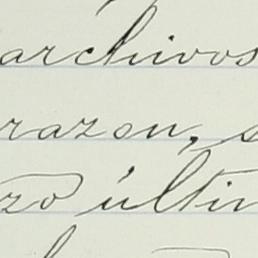 archivos
razon, s
zo últin